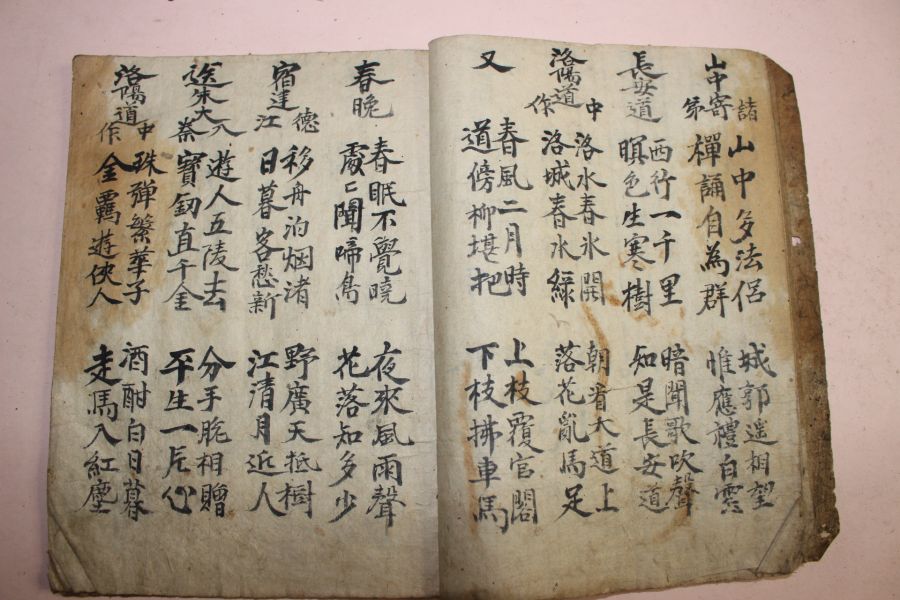 山中寄諸第
山中多法侶 城郭遥相望
禪誦自為群 惟應禮白雲
長安道
西行一千里 暗聞歌吹聲
暝色生寒樹 知是長安道
洛陽道中作
洛水春氷開 朝看大道上
洛城春水綠 落花亂馬足
又
春風二月時 上枝覆官閣
道傍柳堪把 下枝拂車馬
春晚
春眠不覺曉 夜來風雨聲
處〻聞啼鳥 花落知多少
宿建德江
移舟泊烟渚 野廣天抵樹
日暮客愁新 江清月近人
送朱大入秦
遊人五陵去 分手脫相贈
寶釰直千金 平生一片心
洛陽道中作
珠彈繁華子 酒酣白日暮
金羈遊俠人 走馬入紅塵